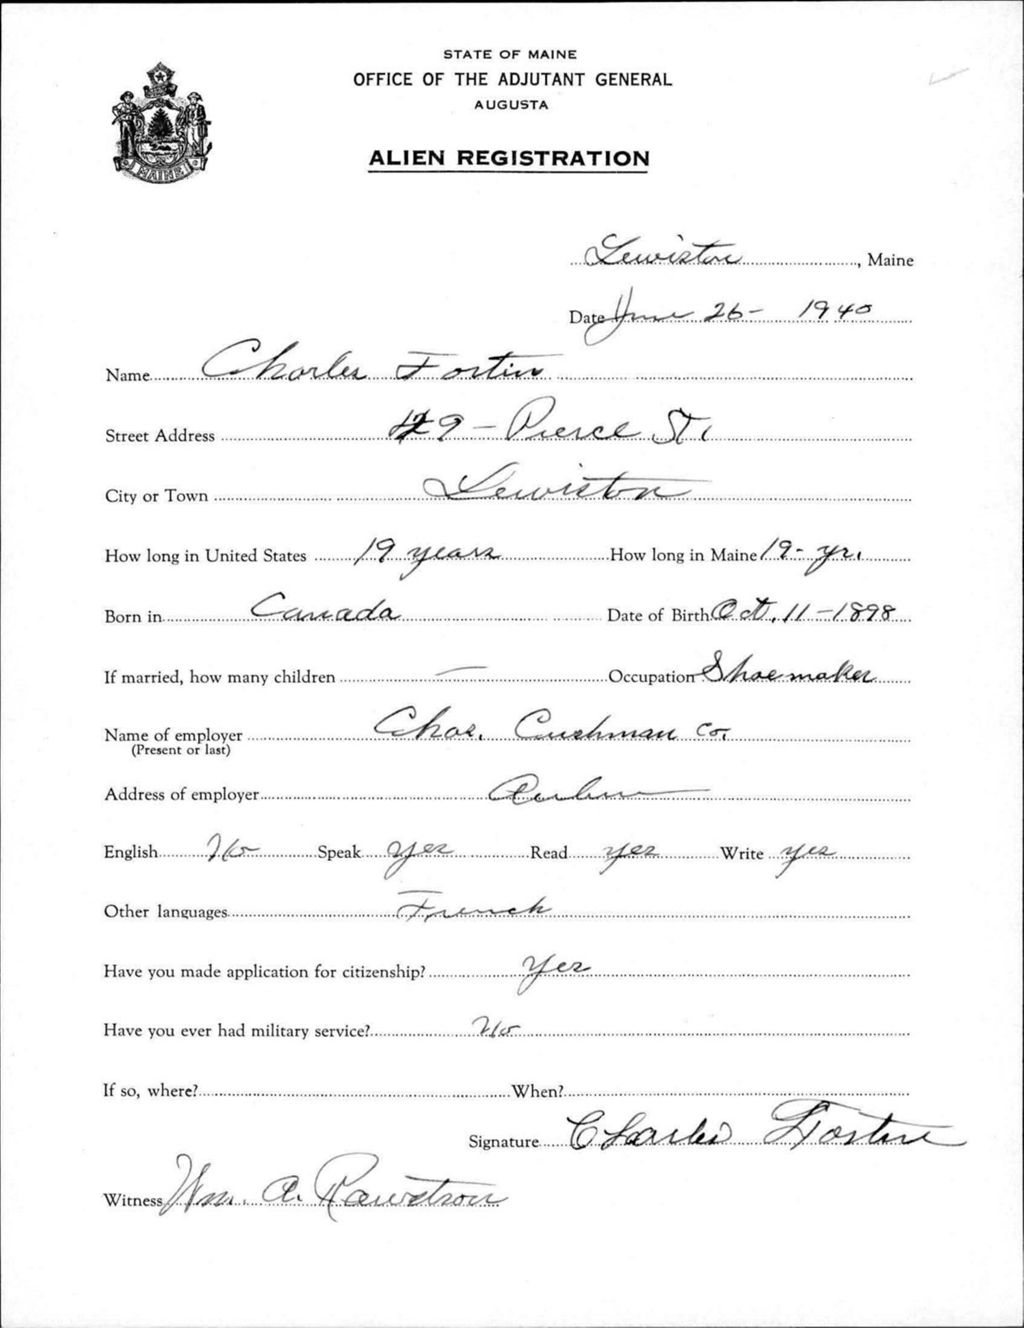 STATE OF MAINE
OFFICE OF THE ADJUTANT GENERAL
AUGUSTA
ALIEN REGISTRATION
MAINE
Lewiston, Maine
Date June 26 - 1940
Name Charles Fortin
Street Address 129 - Pierce St.
City or Town Lewiston
How long in United States 19 years How long in Maine 19 - yr.
Born in Canada Date of Birth Oct. 11 - 1898
If married, how many children — Occupation Shoemaker
Name of employer Chas. Cushman Co.
(Present or last)
Address of employer Auburn
English No Speak yes Read yes Write yes
Other languages French
Have you made application for citizenship? Yes
Have you ever had military service? No
If so, where? When?
Signature Charles Fortin
Witness Wm. A. Rawstron